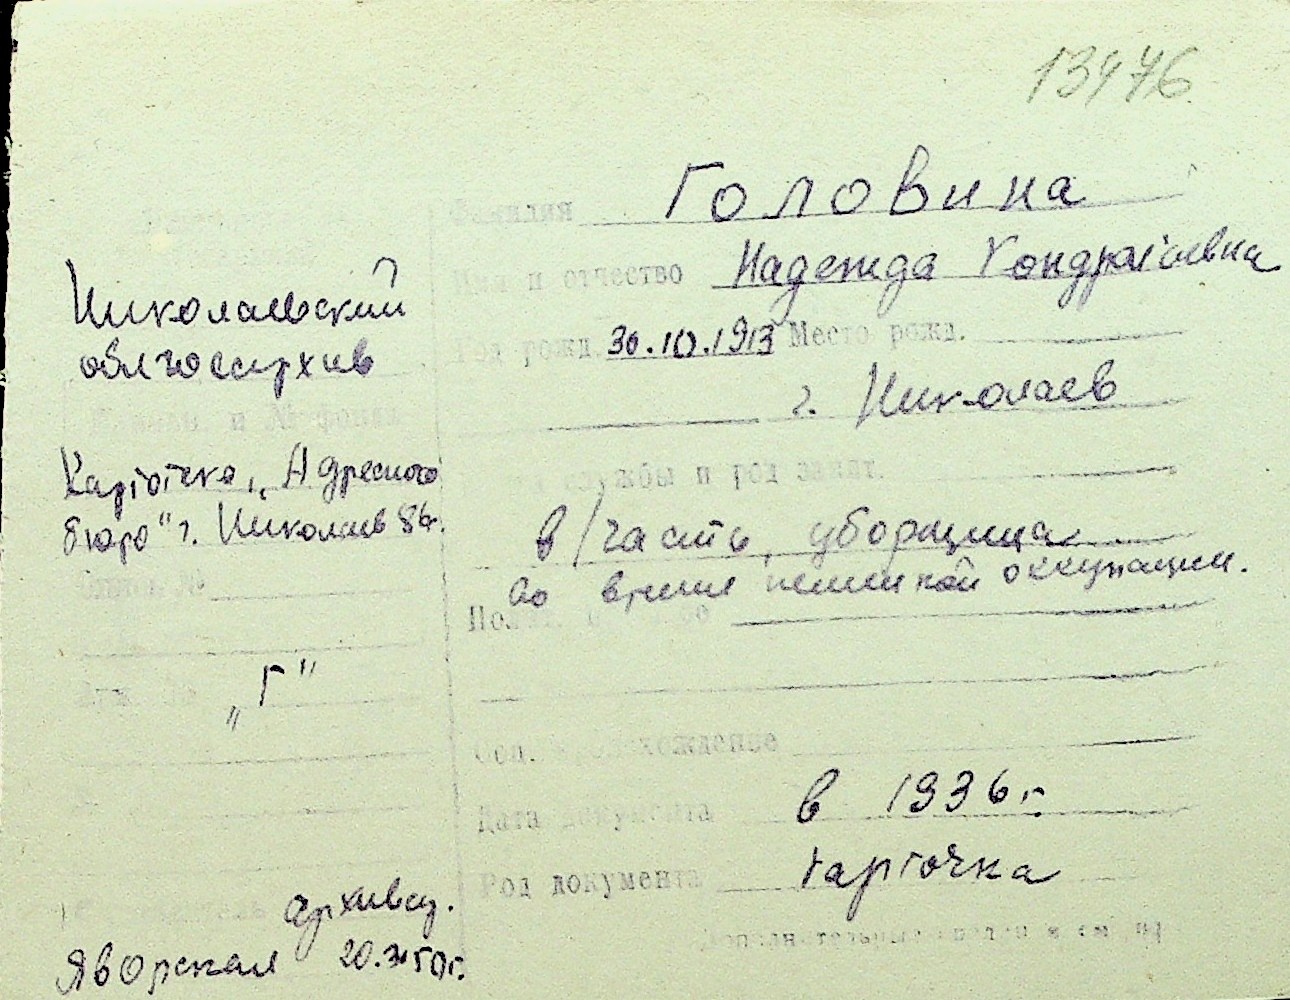 13476
Фамилия Головина
Имя и отчество Надежда Кондратьевна
Год рожд. 30.10.1913 Место рожд.
г. Николаев
службы и род занят.
в/часть, уборщица
во время немецкой оккупации.
Соц. происхождение
Дата документа в 1936 г.
Род документа карточка
Николаевский
облгосархив
Карточка „Адресного
бюро" г. Николаев
„Г"
архивар.
Яворская 20.